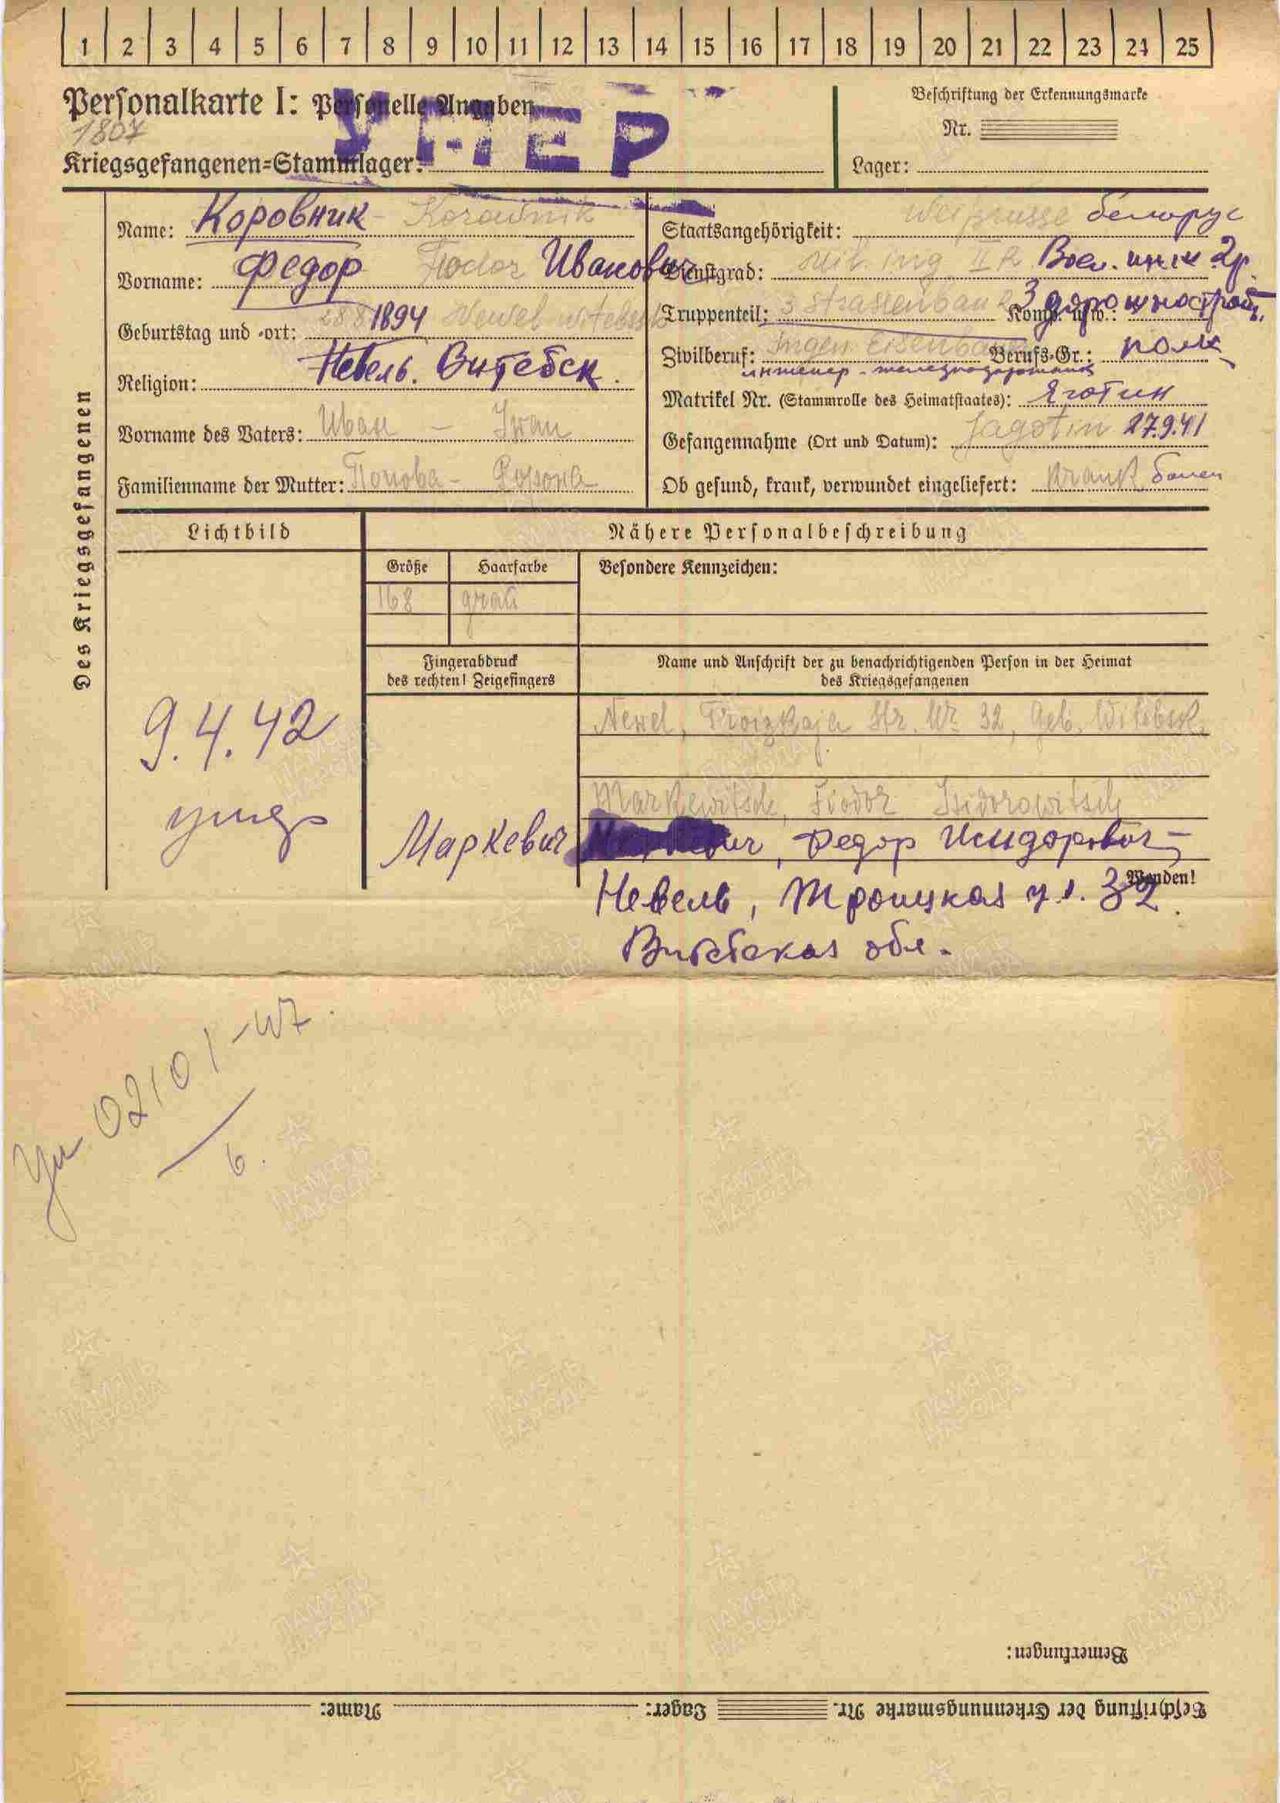 1 2 3 4 5 6 7 8 9 10 11 12 13 14 15 16 17 18 19 20 21 22 23 24 25
Personalkarte I: Personelle Angaben
Beschriftung der Erkennungsmarke
1807
УМЕР
Nr.
Kriegsgefangenen-Stammlager:
Lager:
Des Kriegsgefangenen
Name: Коровник - Korownik
Vorname: Федор Fiodor Иванович
Geburtstag und -ort: 28 8 1894 Newel Witebsk
Невель. Витебск.
Religion:
Vorname des Vaters: Иван - Iwan
Familienname der Mutter: Попова -
Staatsangehörigkeit: Weißrusse белорус
Dienstgrad: Mil. ing II R Воен. инж 2р.
Truppenteil: 3 Strassenbau Komp. usw.: 3 дорожностроит.
Zivilberuf: Ingen Eisenbahn Berufs-Gr.: полк
инженер-железнодорожник
Matrikel Nr. (Stammrolle des Heimatstaates): Яготин
Gefangennahme (Ort und Datum): Jagotin 27.9.41
Ob gesund, krank, verwundet eingeliefert: krank болен
Lichtbild
Nähere Personalbeschreibung
Größe Haarfarbe Besondere Kennzeichen:
168 grau
Fingerabdruck
des rechten! Zeigefingers
Name und Anschrift der zu benachrichtigenden Person in der Heimat
des Kriegsgefangenen
9.4.42
умер
Newel, Troizkaja Str. Nr. 32, Geb. Witebsk.
Markewitsch, Fiodor Isidorowitsch
Маркевич , Федор Исидорович
Wenden!
Невель, Троицкая ул. 32.
Витебская обл.
02101-47.
6.
Bemerkungen:
Beschriftung der Erkennungsmarke Nr. Lager: Name:
ПАМЯТЬ НАРОДА